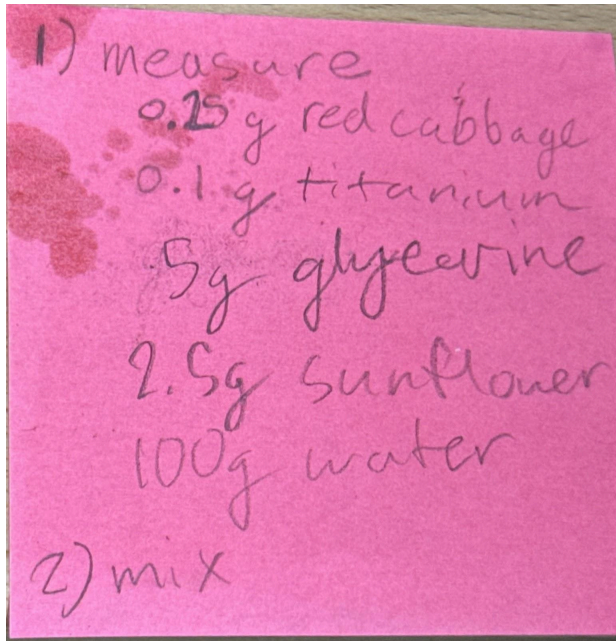 1) measure
0.25g red cabbage
0.1g titanium
5g glycerine
2.5g sunflower
100g water
2) mix